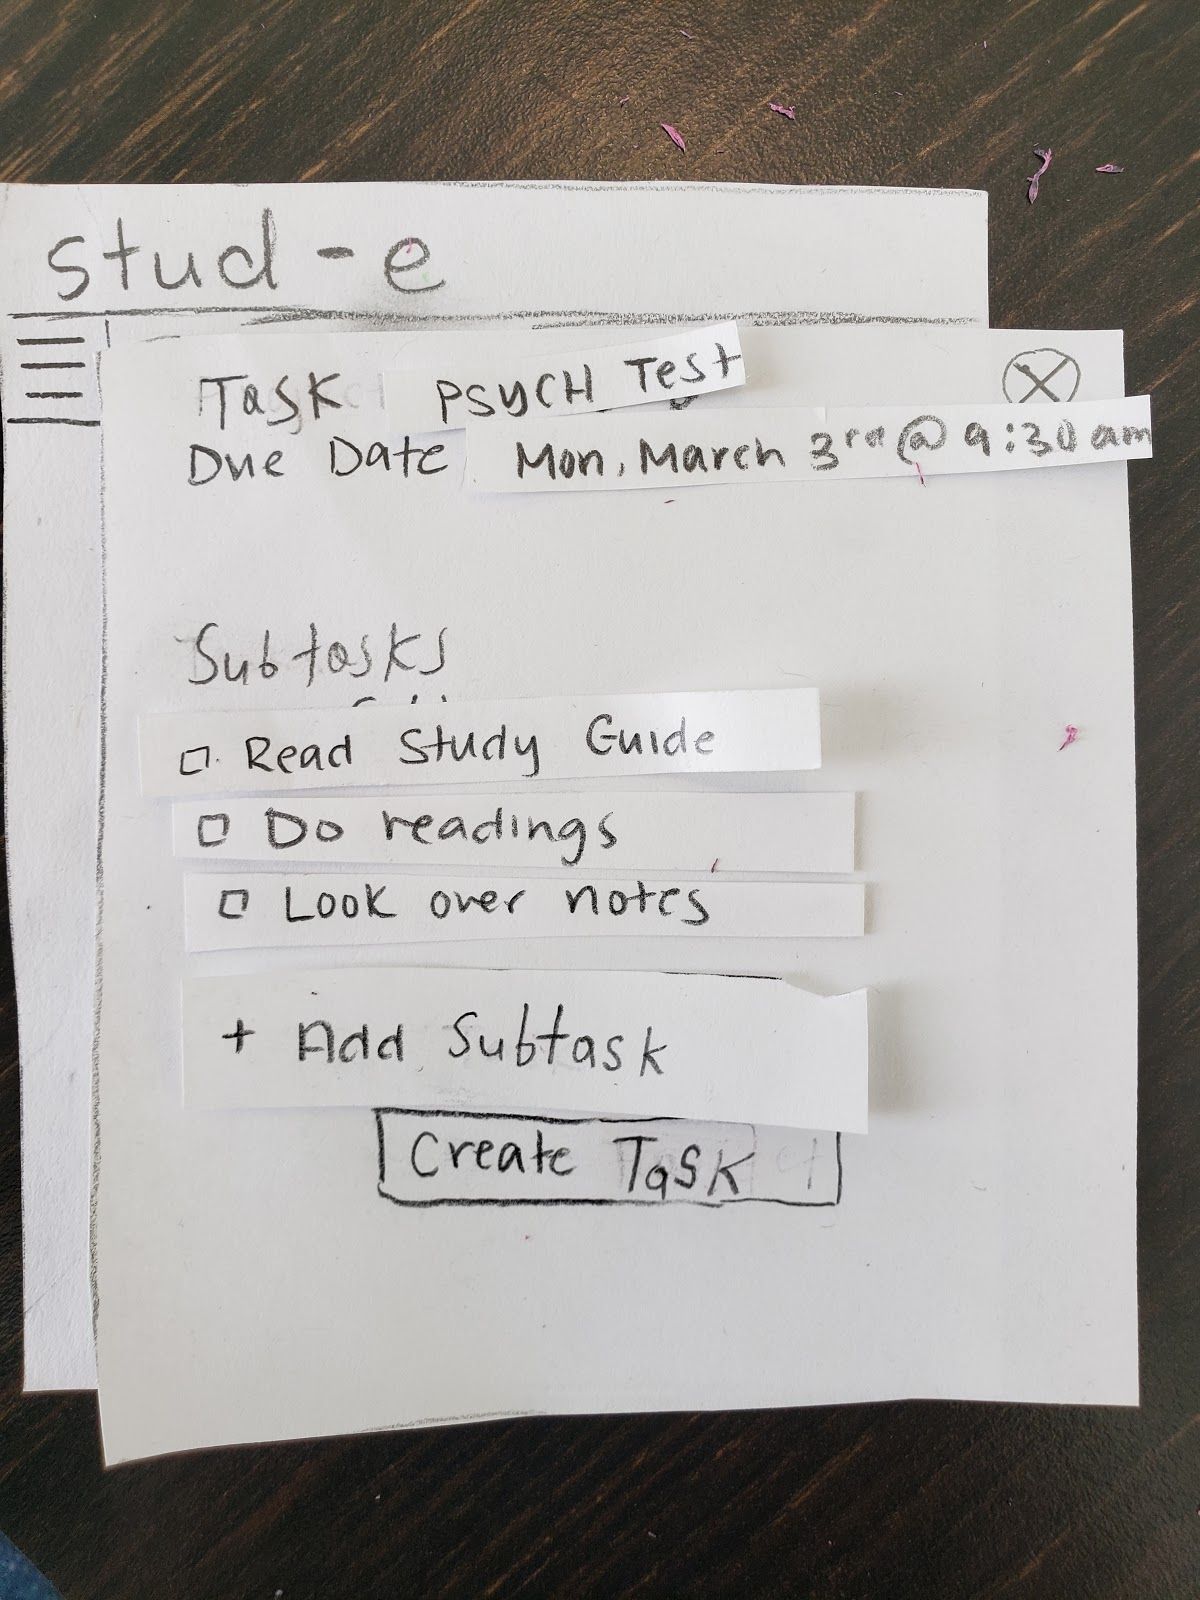 stud-e
Task PSYCH Test
Due Date Mon, March 3rd @ 9:30 am
Subtasks
Read Study Guide
Do readings
Look over notes
+ Add Subtask
Create Task